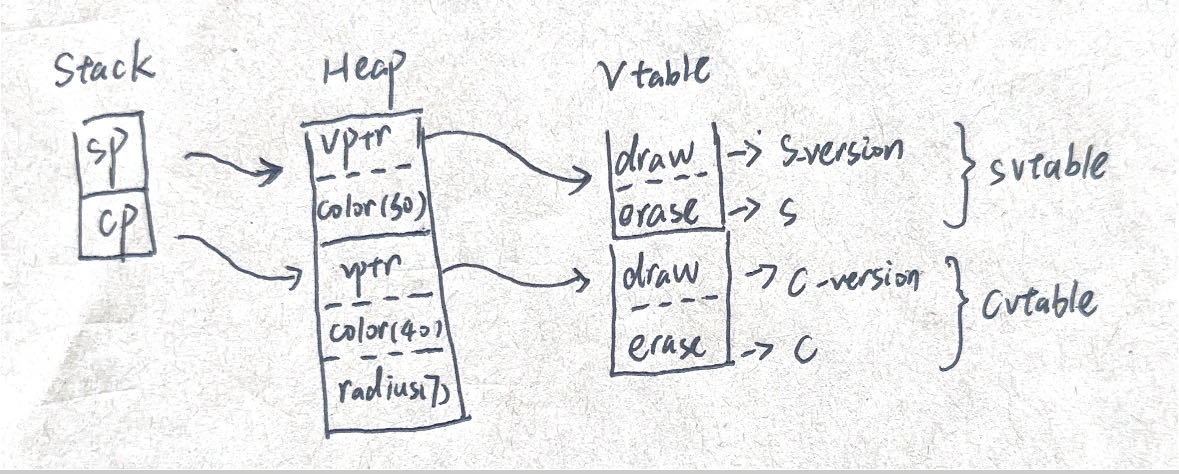 Stack Heap Vtable
sp
cp
vptr
color(50)
vptr
color(40)
radius(7)
draw → S-version
erase → S
svtable
draw → C-version
erase → C
Cvtable